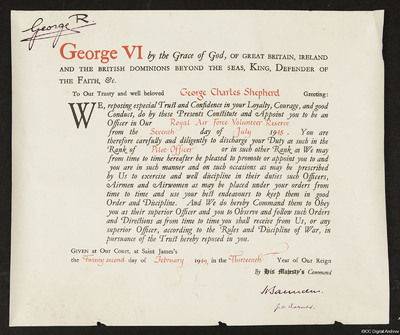 George R.
George VI by the Grace of God, OF GREAT BRITAIN, IRELAND
AND THE BRITISH DOMINIONS BEYOND THE SEAS, KING, DEFENDER OF
THE FAITH, &c.
To Our Trusty and well beloved George Charles Shepherd Greeting:
WE, reposing especial Trust and Confidence in your Loyalty, Courage, and good
Conduct, do by these Presents Constitute and Appoint you to be an
Officer in Our Royal Air Force Volunteer Reserve
from the Seventh day of July 1948. You are
therefore carefully and diligently to discharge your Duty as such in the
Rank of Pilot Officer or in such other Rank as We may
from time to time hereafter be pleased to promote or appoint you to and
you are in such manner and on such occasions as may be prescribed
by Us to exercise and well discipline in their duties such Officers,
Airmen and Airwomen as may be placed under your orders from
time to time and use your best endeavours to keep them in good
Order and Discipline. And We do hereby Command them to Obey
you as their superior Officer and you to Observe and follow such Orders
and Directions as from time to time you shall receive from Us, or any
superior Officer, according to the Rules and Discipline of War, in
pursuance of the Trust hereby reposed in you.
GIVEN at Our Court, at Saint James's
the Twenty second day of February 1949 in the Thirteenth Year of Our Reign
By His Majesty's Command
IBCC Digital Archive